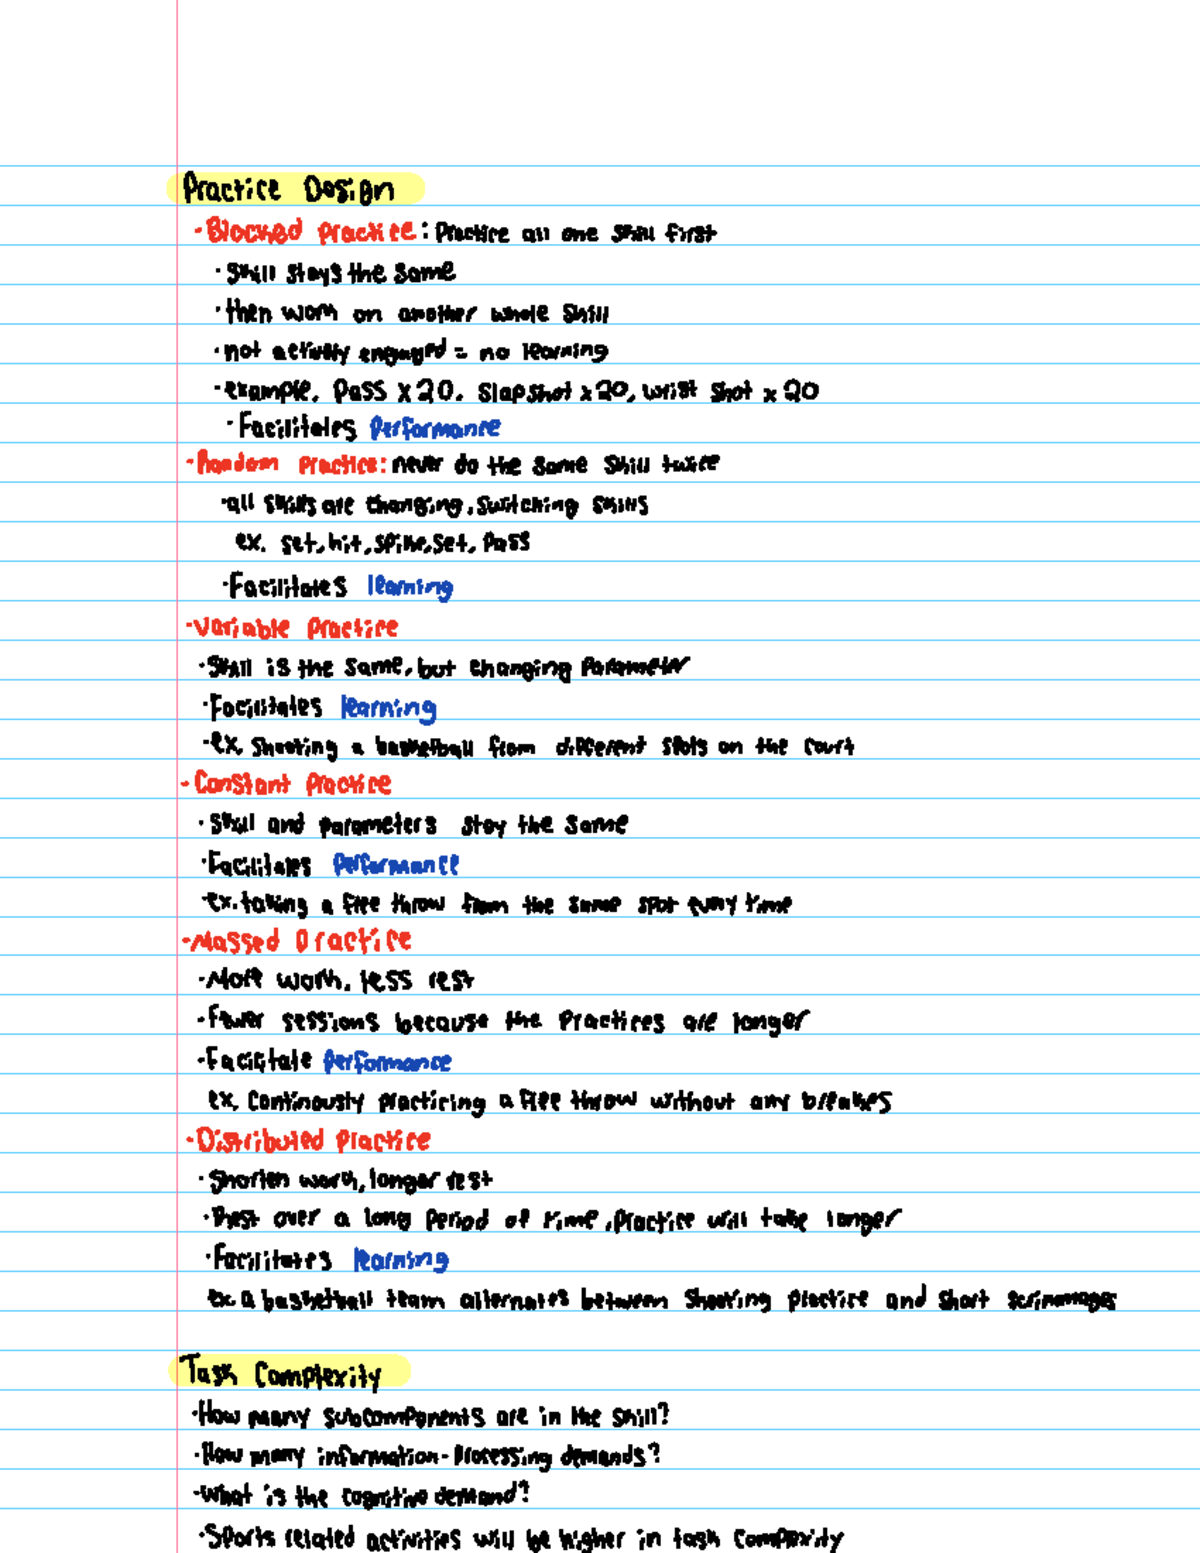 Practice Design
- Blocked practice: Practice all one skill first
· skill stays the same
· then work on another whole skill
· not actively engaged = no learning
· example. Pass x 20. Slapshot x 20, wrist shot x 20
· Facilitates Performance
- Random Practice: never do the same skill twice
· all skills are changing, switching skills
ex. set, hit, spike, set, pass
· Facilitates learning
· Variable Practice
· Skill is the same, but changing Parameter
· Facilitates learning
· ex. Shooting a basketball from different spots on the court
- Constant Practice
· Skill and parameters stay the same
· Facilitates Performance
· ex. taking a free throw from the same spot every time
- Massed Practice
· More work, less rest
· Fewer sessions because the Practices are longer
· Facilitate Performance
ex. Continously practicing a free throw without any breakes
· Distributed Practice
· Shorten work, longer rest
· Rest over a long Period of time, Practice will take longer
· Facilitates learning
ex. a basketball team alternates between Shooting Practice and short scrimmages
Task Complexity
· How many subcomponents are in the skill?
· How many information-Processing demands?
· What is the cognitive demand?
· Sports related activities will be higher in task complexity